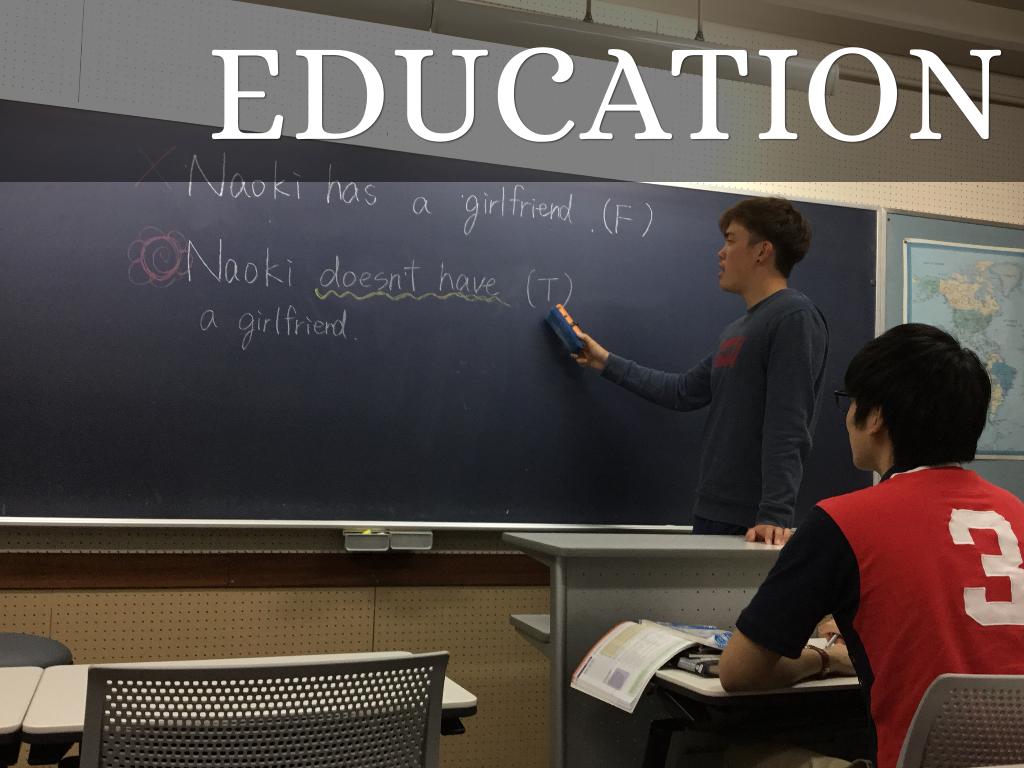 EDUCATION
Naoki has a girlfriend. (F)
Naoki doesn't have (T)
a girlfriend.
3